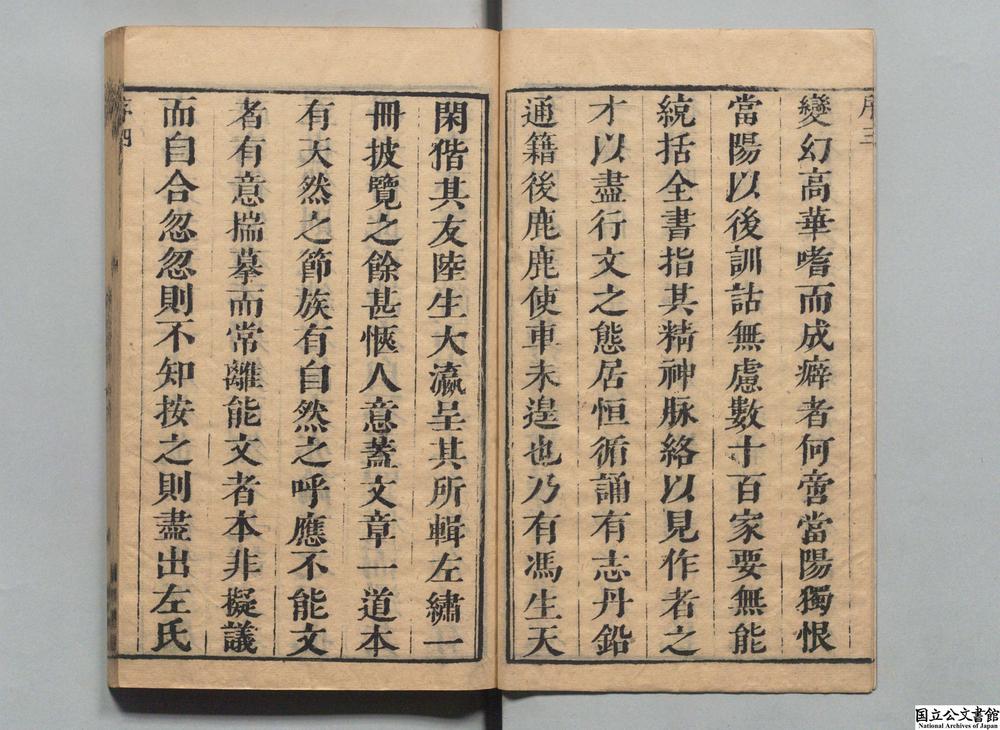 序三
變幻高華嗜而成癖者何啻當陽獨恨
當陽以後訓詁無慮數十百家要無能
統括全書指其精神脉絡以見作者之
才以盡行文之態居恒循誦有志丹鉛
通籍後鹿鹿使車未遑也乃有馮生天
閑偕其友陸生大瀛呈其所輯左繡一
冊披覽之餘甚愜人意蓋文章一道本
有天然之節族有自然之呼應不能文
者有意揣摹而常離能文者本非擬議
而自合忽忽則不知按之則盡出左氏
序四
国立公文書館
National Archives of Japan